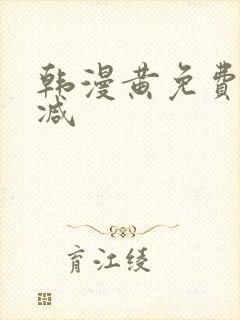 韩漫黄免费
减
育江绫